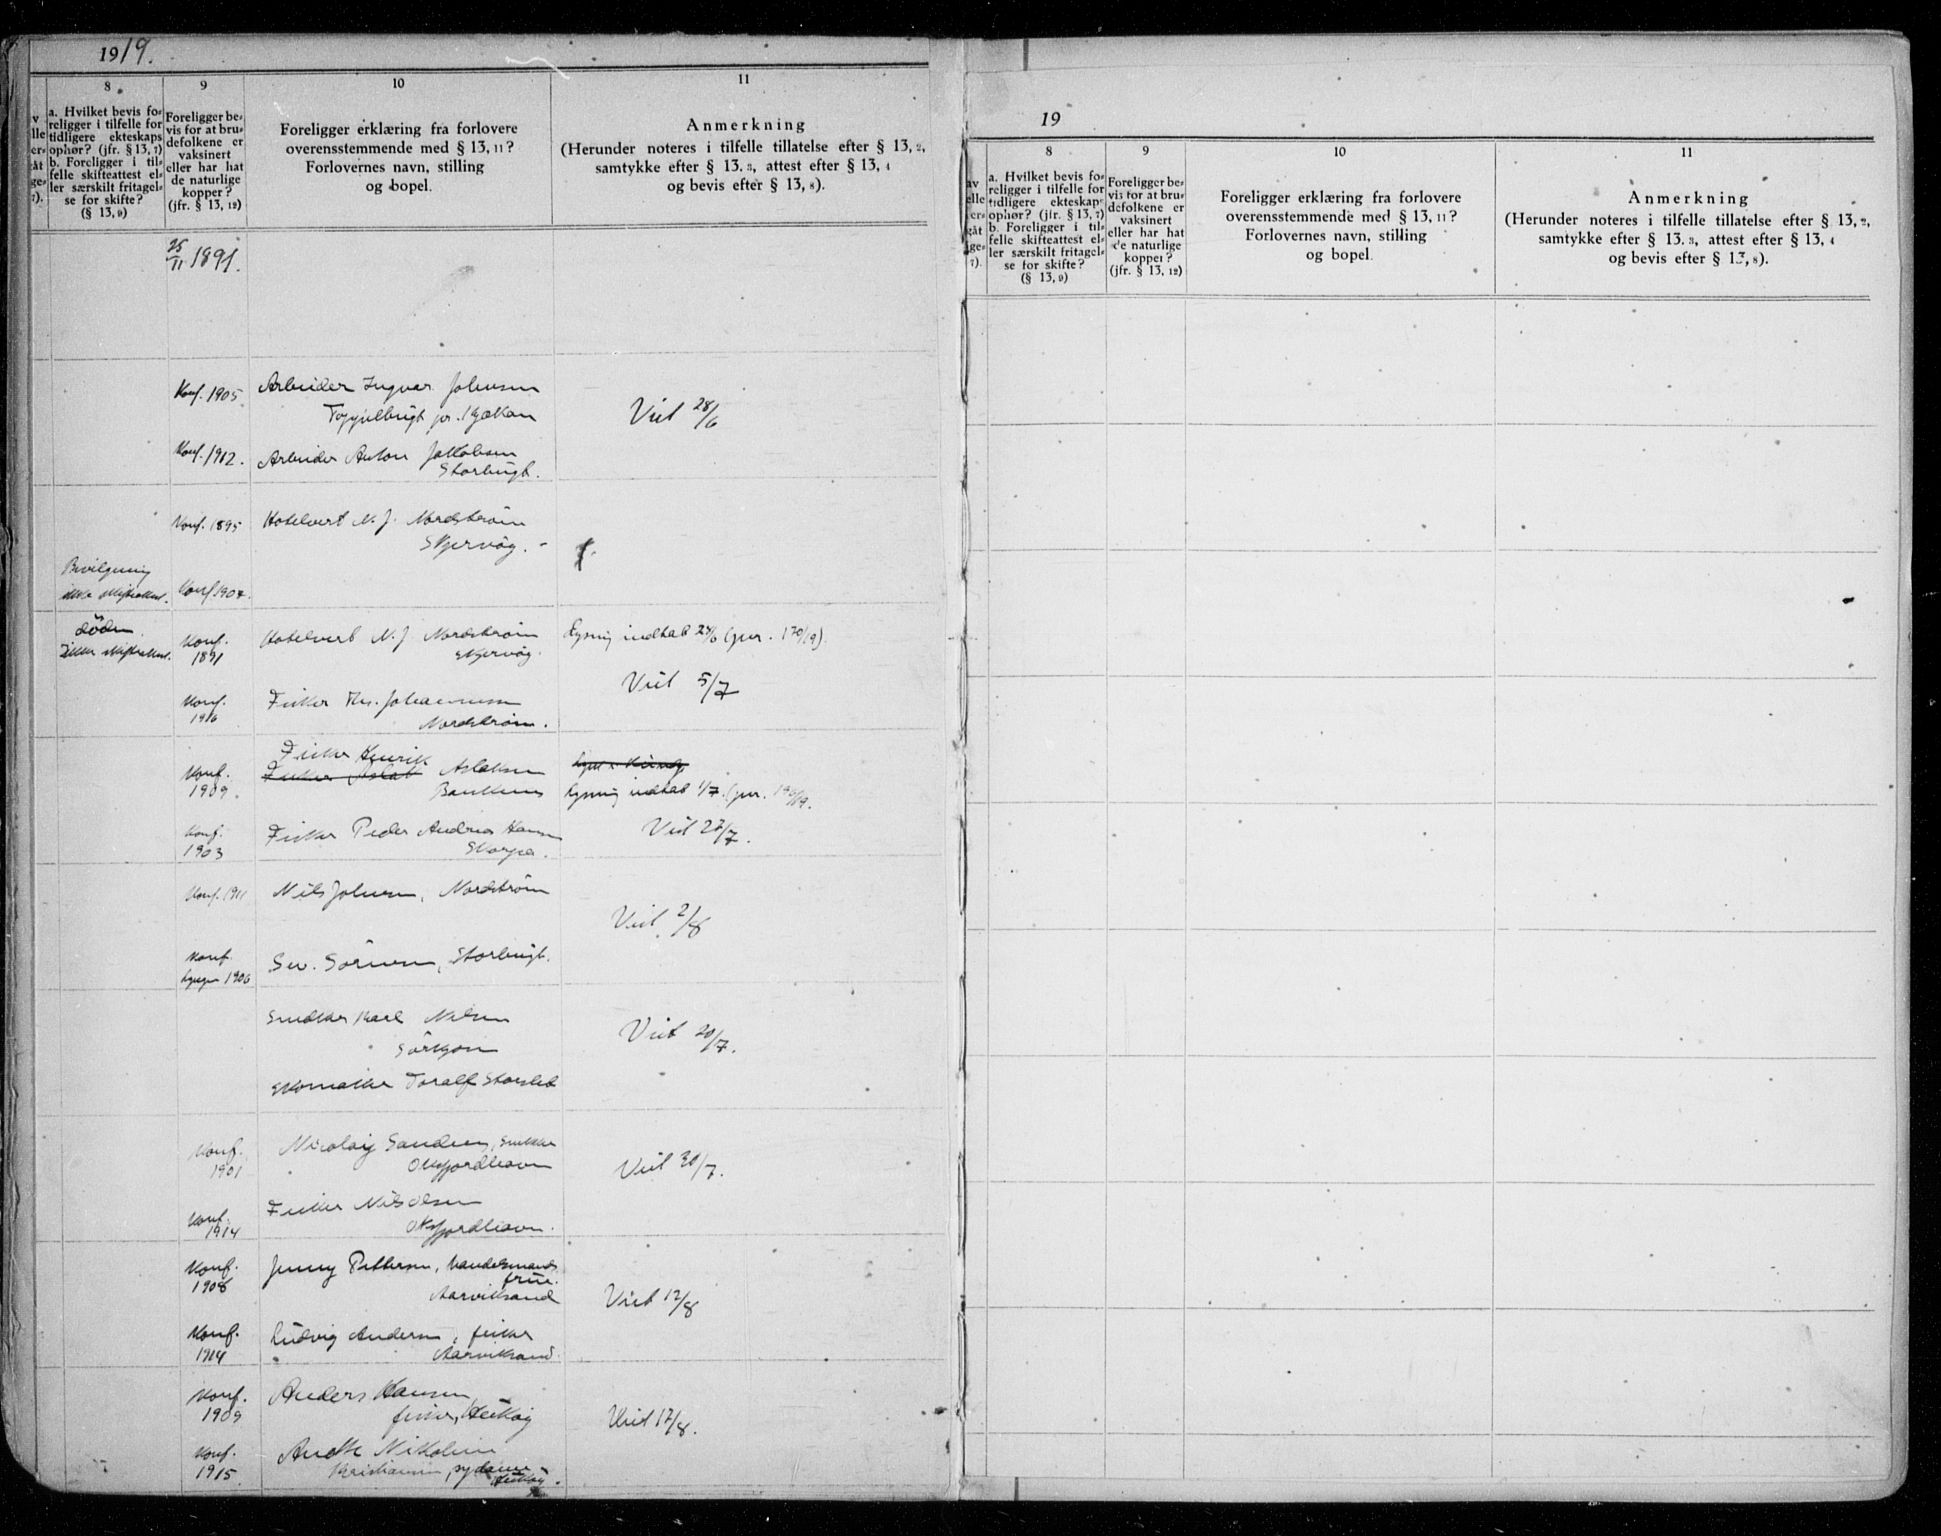 1919.
8
9
10
11
v
lle
er=
åt
ge=
7).
a. Hvilket bevis fo=
religger i tilfelle for
tidligere ekteskaps
ophør? (jfr. § 13, 7)
b. Foreligger i til=
felle skifteattest el=
ler særskilt fritagel=
se for skifte?
(§ 13, 9)
Foreligger be=
vis for at bru=
defolkene er
vaksinert
eller har hat
de naturlige
kopper?
(jfr. § 13, 12)
Foreligger erklæring fra forlovere
overensstemmende med § 13, 11?
Forlovernes navn, stilling
og bopel.
Anmerkning
(Herunder noteres i tilfelle tillatelse efter § 13, 2,
samtykke efter § 13. 3, attest efter § 13, 4
og bevis efter § 13, 8).
25/11 1891.
Konf. 1905
Arbeider Ingvar Johnsen
Viet 28/6
Konf. 1912.
Arbeider Anton Jakobsen
Storbugt.
Konf. 1895
Hotelvert N. J. Nordstrøm
Skjervøy.
Bevilgning
ikke skifteattest.
Konf 1904.
döden
Ikke skifteattest.
Konf.
1891
Hotelvert N. J. Nordstrøm
Skjervøy.
Lysning indtat 24/6 (jur. 170/19).
Viet 5/7
Konf.
1916
Fisker Johannesen
Nordstrøm.
Konf.
1909.
Fisker Henrik
Fisker Aslak Aslaksen
Bankenes
Lysning indtat 1/7. (jur. 190/19.
Konf.
1903
Fisker Peder Andreas Hansen
Skorpa.
Viet 27/7.
Konf. 1911
Nils Johnsen, Nordstrøm
Viet 2/8
Konf.
Lyngen 1906
Sev. Sörensen, Storbugt.
Snekker Karl Nilsen
Sörkjosen
Viet 20/7.
Skomaker Toralf Storslet
Konf.
1901
Nicolay Sandnes, Snekker
Oksfjordhavn
Viet 30/7.
Konf.
1914
Fisker Nils Olsen
Oksfjordhavn.
Konf.
1908
Jenny Pettersen, handelsmands
frue.
Aarviksand
Viet 12/8
Konf.
1914
Ludvig Andersen, fisker
Aarviksand.
Konf.
1909
Anders Hansen
fisker, Hekkøy
Viet 17/8.
Konf.
1915.
Anette Nikoline
Kristiansen, sydame
Hekkøy.
19
8
9
10
11
av
elle
ers
gåt
ige=
7).
a. Hvilket bevis fo=
religger i tilfelle for
tidligere ekteskaps
ophør? (jfr. § 13, 7)
b. Foreligger i til=
felle skifteattest el=
ler særskilt fritagel=
se for skifte?
(§ 13, 9)
Foreligger be=
vis for at bru=
defolkene er
vaksinert
eller har hat
de naturlige
kopper?
(jfr. § 13, 12)
Foreligger erklæring fra forlovere
overensstemmende med § 13, 11?
Forlovernes navn, stilling
og bopel.
Anmerkning
(Herunder noteres i tilfelle tillatelse efter § 13, 2,
samtykke efter § 13. 3, attest efter § 13, 4
og bevis efter § 13, 8).